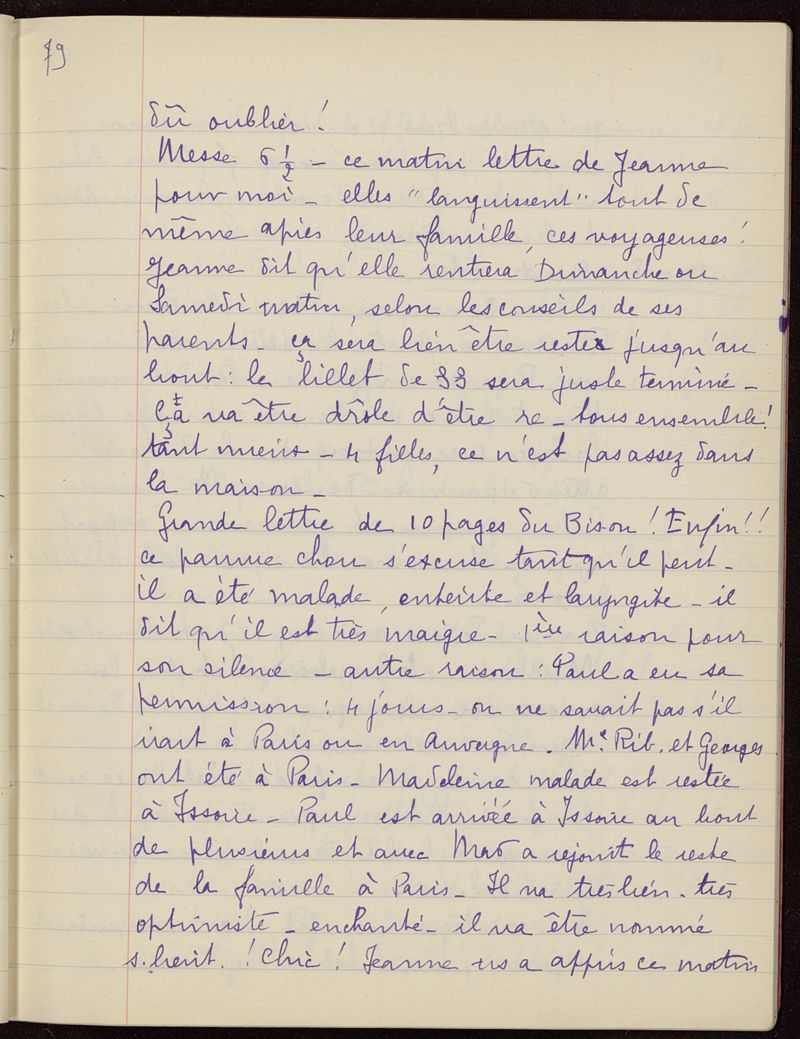 79
dû oublier !
Messe 6 1/2 – ce matin lettre de Jeanne
pour moi – elles "languissent" tout de
même après leur famille, ces voyageuses !
Jeanne dit qu'elle rentrera Dimanche ou
Samedi matin, selon les conseils de ses
parents – ça sera bien être restée jusqu'au
bout : le billet de 33 sera juste terminé –
Ça va être drôle d'être re-tous ensemble !
tant mieux – 4 filles, ce n'est pas assez dans
la maison –
Grande lettre de 10 pages du Bison ! Enfin !!
ce pauvre chou s'excuse tant qu'il peut –
il a été malade, entérite et laryngite – il
dit qu'il est très maigre – 1ière raison pour
son silence – autre raison : Paul a eu sa
permission : 4 jours – on ne savait pas s'il
irait à Paris ou en Auvergne. Me Rib. et Georges
ont été à Paris – Madeleine malade est restée
à Issoire – Paul est arrivé à Issoire au bout
de plusieurs et avec Mad a rejoint le reste
de la famille à Paris – Il va très bien – très
optimiste – enchanté – il va être nommé
s. lieut. ! Chic ! Jeanne ns a appris ce matin